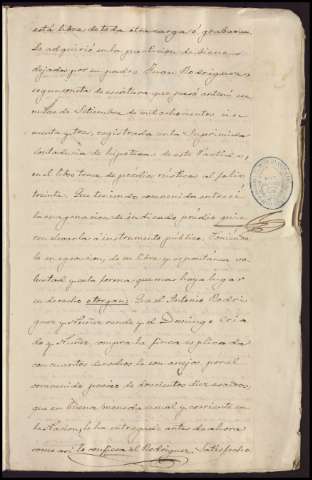 está libre de toda otra carga ó gravamen
La adquirió en la particion de bienes
dejados por su padre Juan Rodriguez
segun consta de escritura que pasó ante mi en
de Setiembre de mil ochocientos
y tres, registrada en la suprimida
Contaduria de hipotecas de este Partido,
en el libro tomo de predios rústicos al folio
treinta. Que teniendo convenida entre sí
la enagenacion de indicado prédio quie-
ren elevarla á instrumento público, y
la en ejecucion, de su libre y espontánea vo-
luntad y en la forma que mas haya lugar
en derecho otorgan: Que el Antonio Rodri-
guez y Nuñez vende y el Domingo
y Nuñez, compra la finca esplicada
con cuantos derechos le son anejos, por el
convenido precio de doscientos diez escudos,
que en buena moneda usual y corriente en
la Nacion, le ha entregado antes de ahora
como así lo confiesa el Rodriguez. Satisfecho